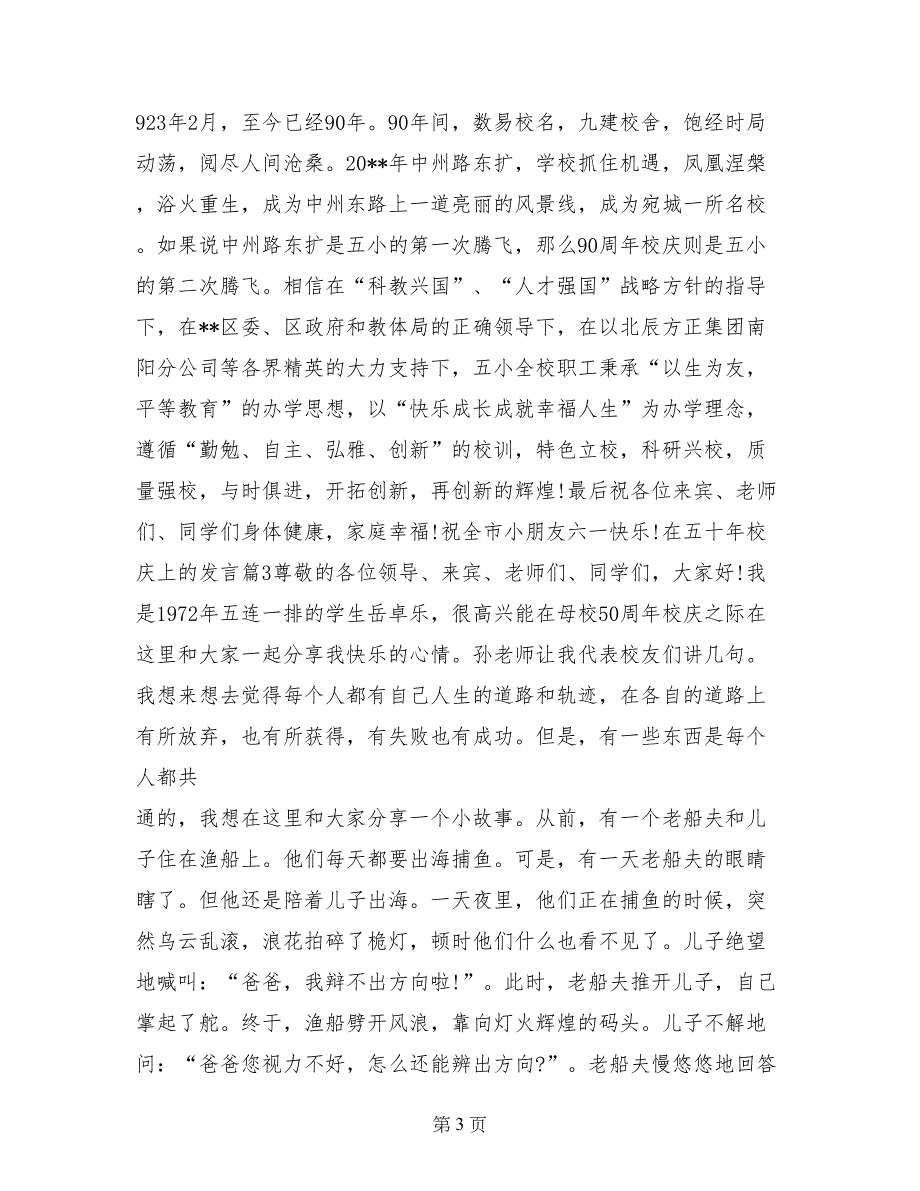 923年2月，至今已经90年。90年间，数易校名，九建校舍，饱经时局
动荡，阅尽人间沧桑。20**年中州路东扩，学校抓住机遇，凤凰涅槃
，浴火重生，成为中州东路上一道亮丽的风景线，成为宛城一所名校
。如果说中州路东扩是五小的第一次腾飞，那么90周年校庆则是五小
的第二次腾飞。相信在“科教兴国”、“人才强国”战略方针的指导
下，在**区委、区政府和教体局的正确领导下，在以北辰方正集团南
阳分公司等各界精英的大力支持下，五小全校职工秉承“以生为友，
平等教育”的办学思想，以“快乐成长成就幸福人生”为办学理念，
遵循“勤勉、自主、弘雅、创新”的校训，特色立校，科研兴校，质
量强校，与时俱进，开拓创新，再创新的辉煌!最后祝各位来宾、老师
们、同学们身体健康，家庭幸福!祝全市小朋友六一快乐!在五十年校
庆上的发言篇3尊敬的各位领导、来宾、老师们、同学们，大家好!我
是1972年五连一排的学生岳卓乐，很高兴能在母校50周年校庆之际在
这里和大家一起分享我快乐的心情。孙老师让我代表校友们讲几句。
我想来想去觉得每个人都有自己人生的道路和轨迹，在各自的道路上
有所放弃，也有所获得，有失败也有成功。但是，有一些东西是每个
人都共
通的，我想在这里和大家分享一个小故事。从前，有一个老船夫和儿
子住在渔船上。他们每天都要出海捕鱼。可是，有一天老船夫的眼睛
瞎了。但他还是陪着儿子出海。一天夜里，他们正在捕鱼的时候，突
然乌云乱滚，浪花拍碎了桅灯，顿时他们什么也看不见了。儿子绝望
地喊叫：“爸爸，我辩不出方向啦!”。此时，老船夫推开儿子，自己
掌起了舵。终于，渔船劈开风浪，靠向灯火辉煌的码头。儿子不解地
问：“爸爸您视力不好，怎么还能辨出方向?”。老船夫慢悠悠地回答
第 3 页